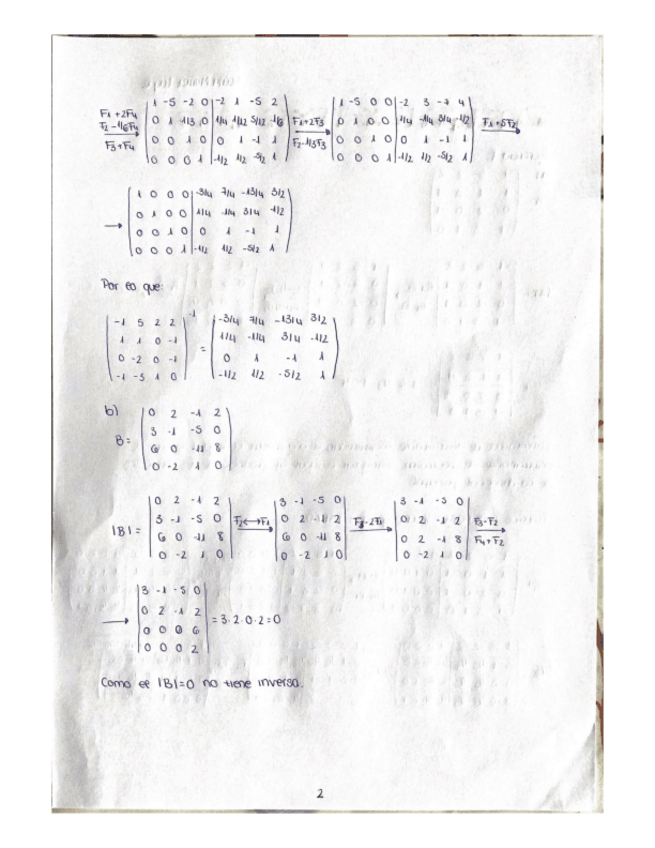 F1 + 2F4
F2 - 1/6F4
F3 + F4
1 -5 -2 0 | -2 1 -5 2
0 1 1/3 0 | 1/4 1/12 5/12 -1/6
0 0 1 0 | 0 1 -1 1
0 0 0 1 | -1/2 1/2 -5/2 1
F1+2F3
F2-1/3F3
1 -5 0 0 | -2 3 -7 4
0 1 0 0 | 1/4 -1/4 3/4 -1/2
0 0 1 0 | 0 1 -1 1
0 0 0 1 | -1/2 1/2 -5/2 1
F1+5F2
→
1 0 0 0 | -3/4 7/4 -13/4 3/2
0 1 0 0 | 1/4 -1/4 3/4 -1/2
0 0 1 0 | 0 1 -1 1
0 0 0 1 | -1/2 1/2 -5/2 1
Por lo que:
-1 5 2 2
1 1 0 -1
0 -2 0 -1
-1 -5 1 0
-1
=
-3/4 7/4 -13/4 3/2
1/4 -1/4 3/4 -1/2
0 1 -1 1
-1/2 1/2 -5/2 1
b)
B =
0 2 -1 2
3 -1 -5 0
6 0 -11 8
0 -2 1 0
|B| =
0 2 -1 2
3 -1 -5 0
6 0 -11 8
0 -2 1 0
F2↔F1
3 -1 -5 0
0 2 -1 2
6 0 -11 8
0 -2 1 0
F3-2F1
3 -1 -5 0
0 2 -1 2
0 2 -1 8
0 -2 1 0
F3-F2
F4+F2
→
3 -1 -5 0
0 2 -1 2
0 0 0 6
0 0 0 2
= 3·2·0·2=0
Como el |B|=0 no tiene inversa.
2